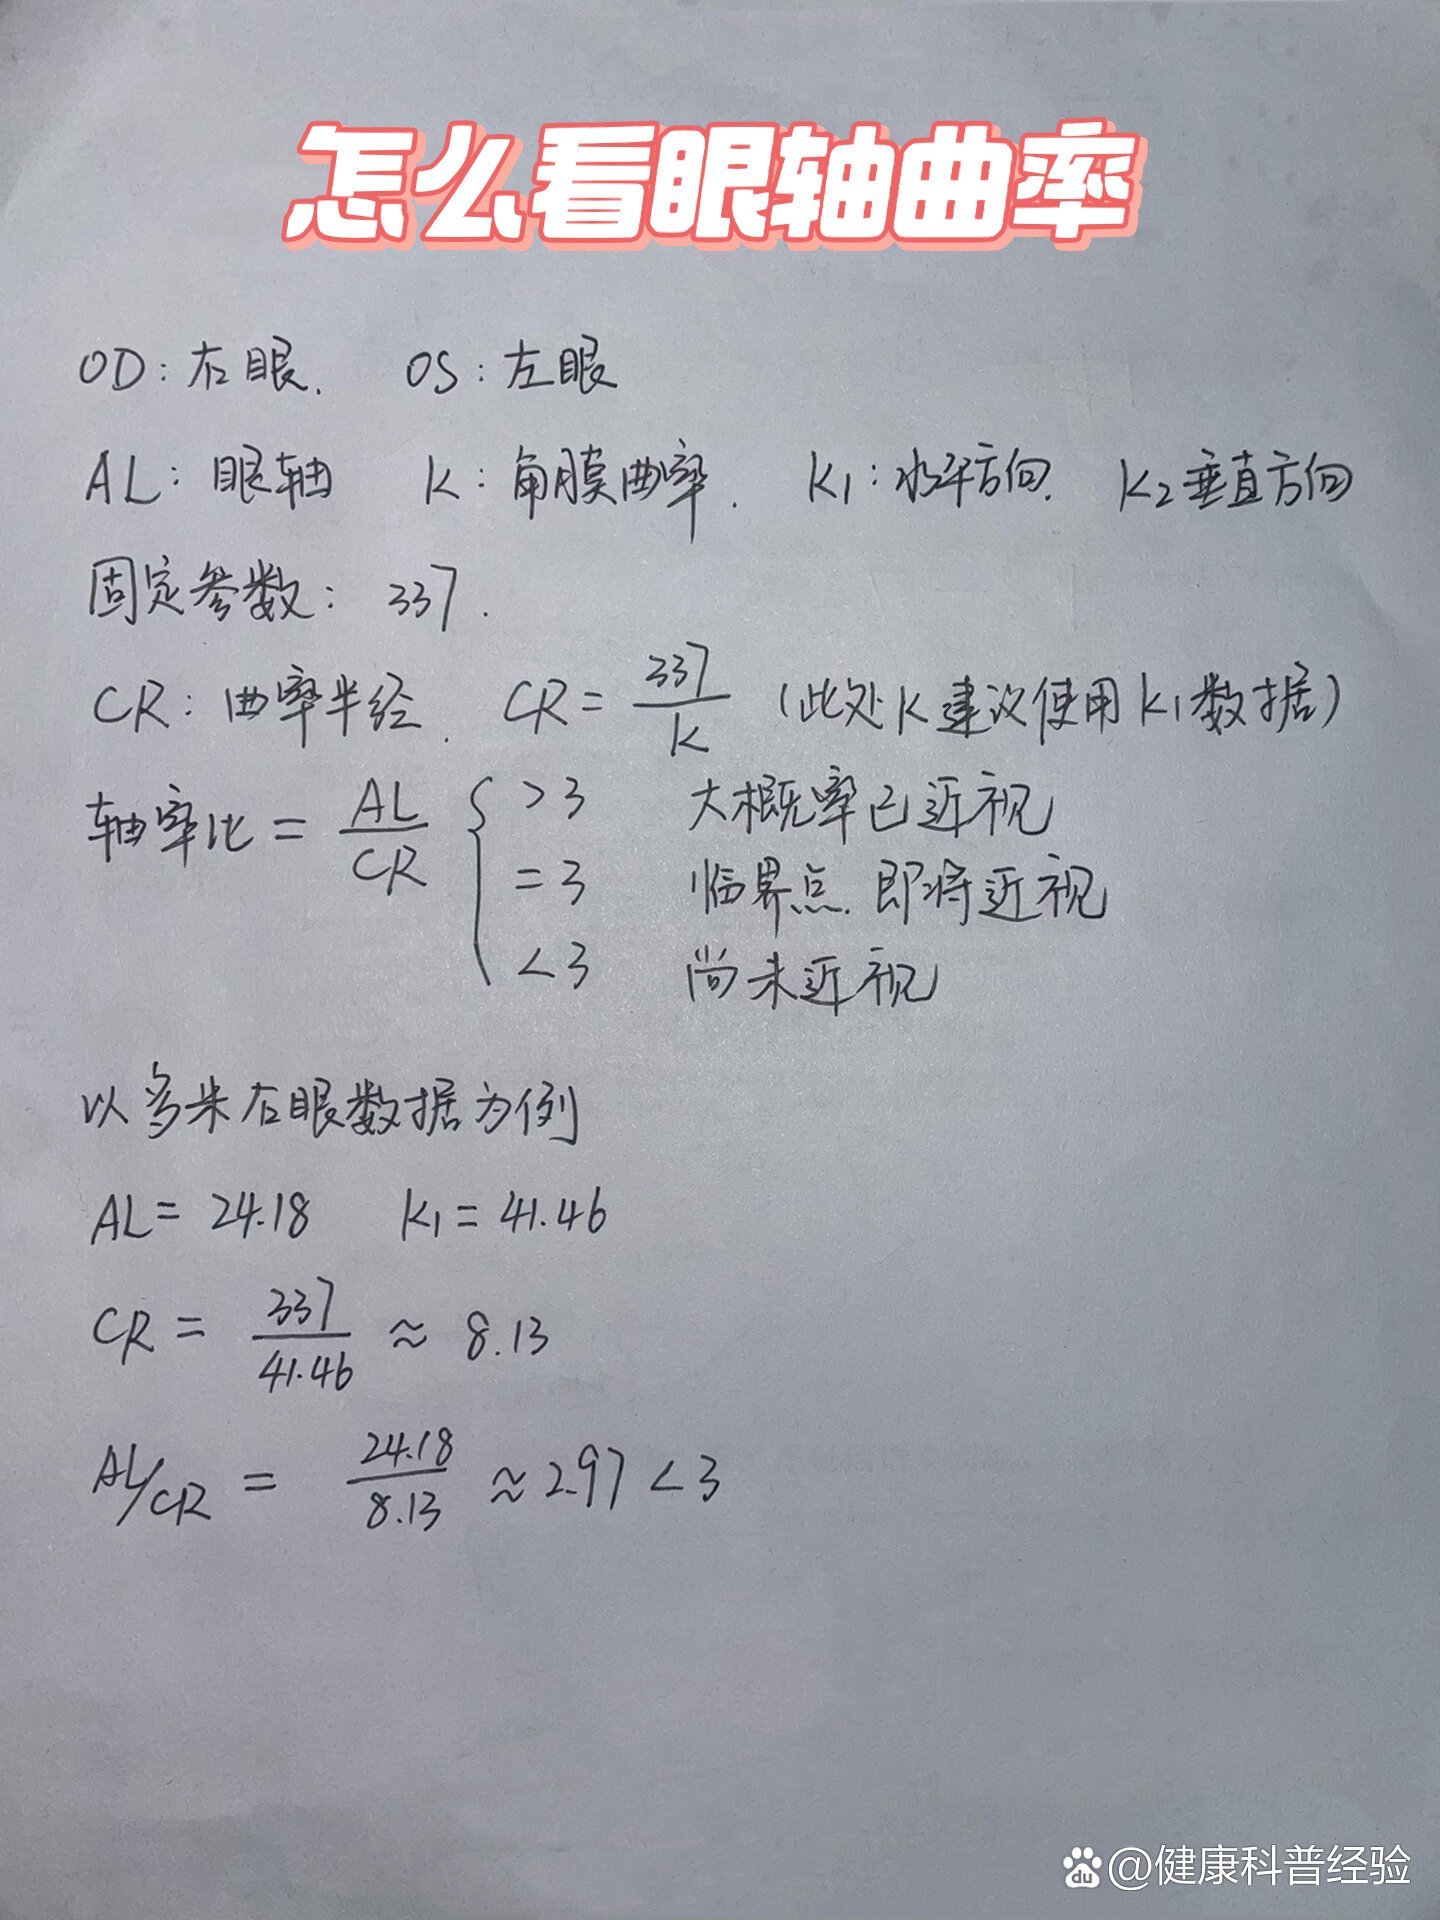 怎么看眼轴曲率
OD：右眼. OS：左眼
AL：眼轴 K：角膜曲率. K1：水平方向. K2垂直方向
固定参数：337.
CR：曲率半经. CR = 337/K (此处K建议使用K1数据)
轴率比 = AL/CR { >3 大概率已近视
=3 临界点. 即将近视
<3 尚未近视
以多米右眼数据为例
AL = 24.18 K1 = 41.46
CR = 337/41.46 ≈ 8.13
AL/CR = 24.18/8.13 ≈ 2.97 < 3
du @健康科普经验